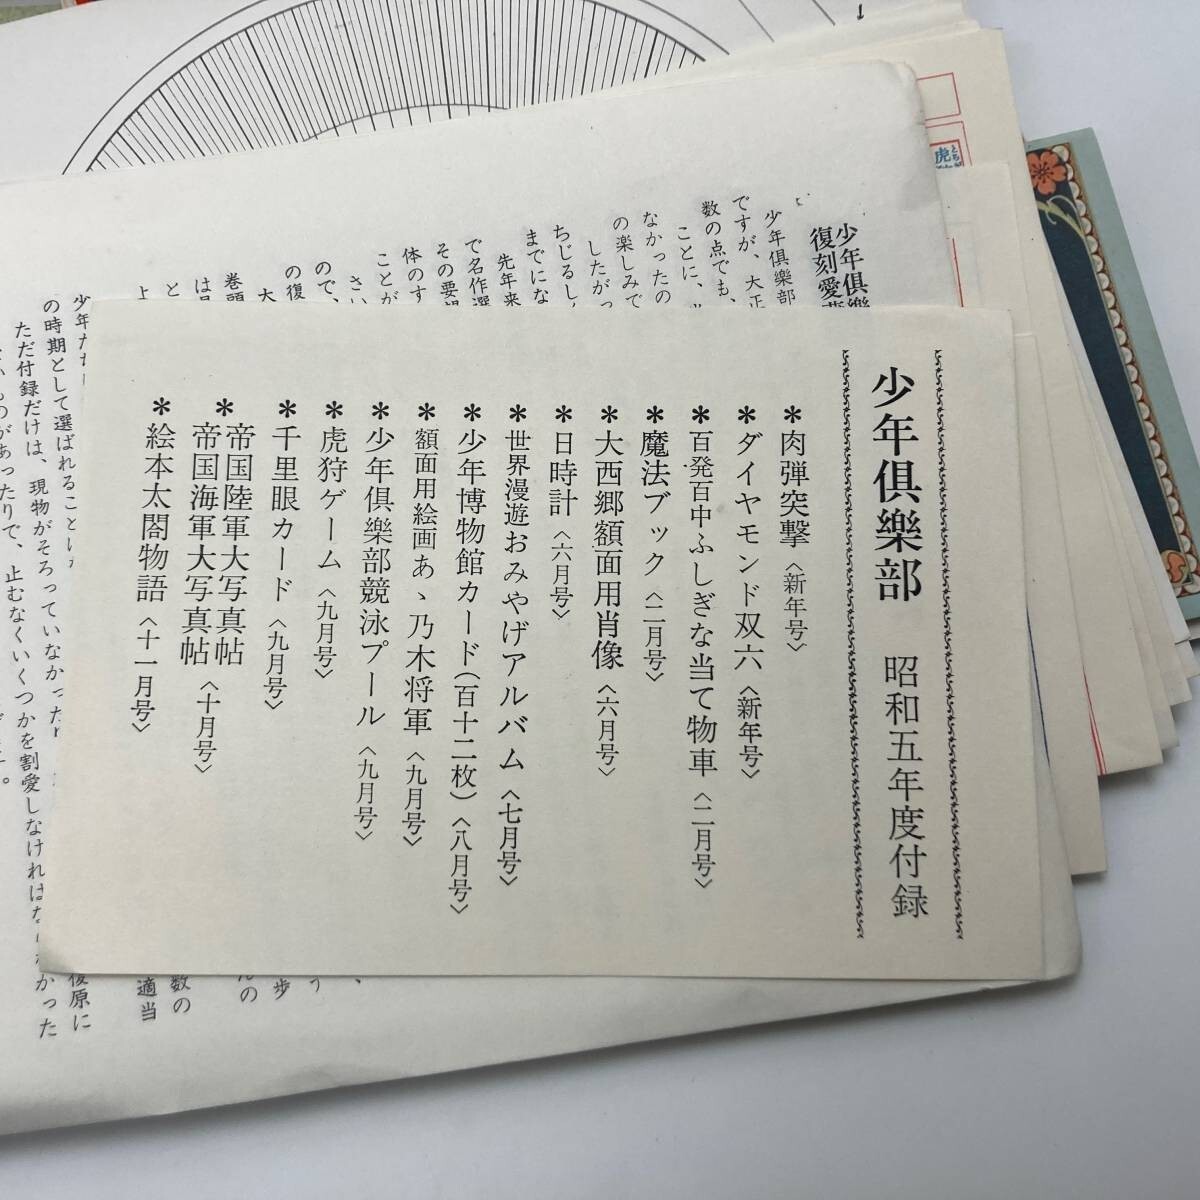 少年倶樂部 昭和五年度付録
＊肉弾突撃〈新年号〉
＊ダイヤモンド双六〈新年号〉
＊百発百中ふしぎな当て物車〈二月号〉
＊魔法ブック〈二月号〉
＊大西郷額面用肖像〈六月号〉
＊日時計〈六月号〉
＊世界漫遊おみやげアルバム〈七月号〉
＊少年博物館カード(百十二枚)〈八月号〉
＊額面用絵画あゝ乃木将軍〈九月号〉
＊少年倶樂部競泳プール〈九月号〉
＊虎狩ゲーム〈九月号〉
＊千里眼カード〈九月号〉
＊帝国陸軍大写真帖
帝国海軍大写真帖〈十月号〉
＊絵本太閤物語〈十一月号〉
少年倶樂
復刻愛
少年倶樂部
ですが、大正
数の点でも、
ことに、
なかったの
の楽しみで
したがっ
ちじるしく
までにな
先年来
で名作選
その要望
体のす
ことが
さい
ので、
の復
大
巻頭
は
と
よ
少年たち
の時期として選ばれること
ただ付録だけは、現物がそろっていなかった
ものがあったりで、止むなくいくつかを割愛しなければな
復原に
かった
適当
数の
の
歩
虎